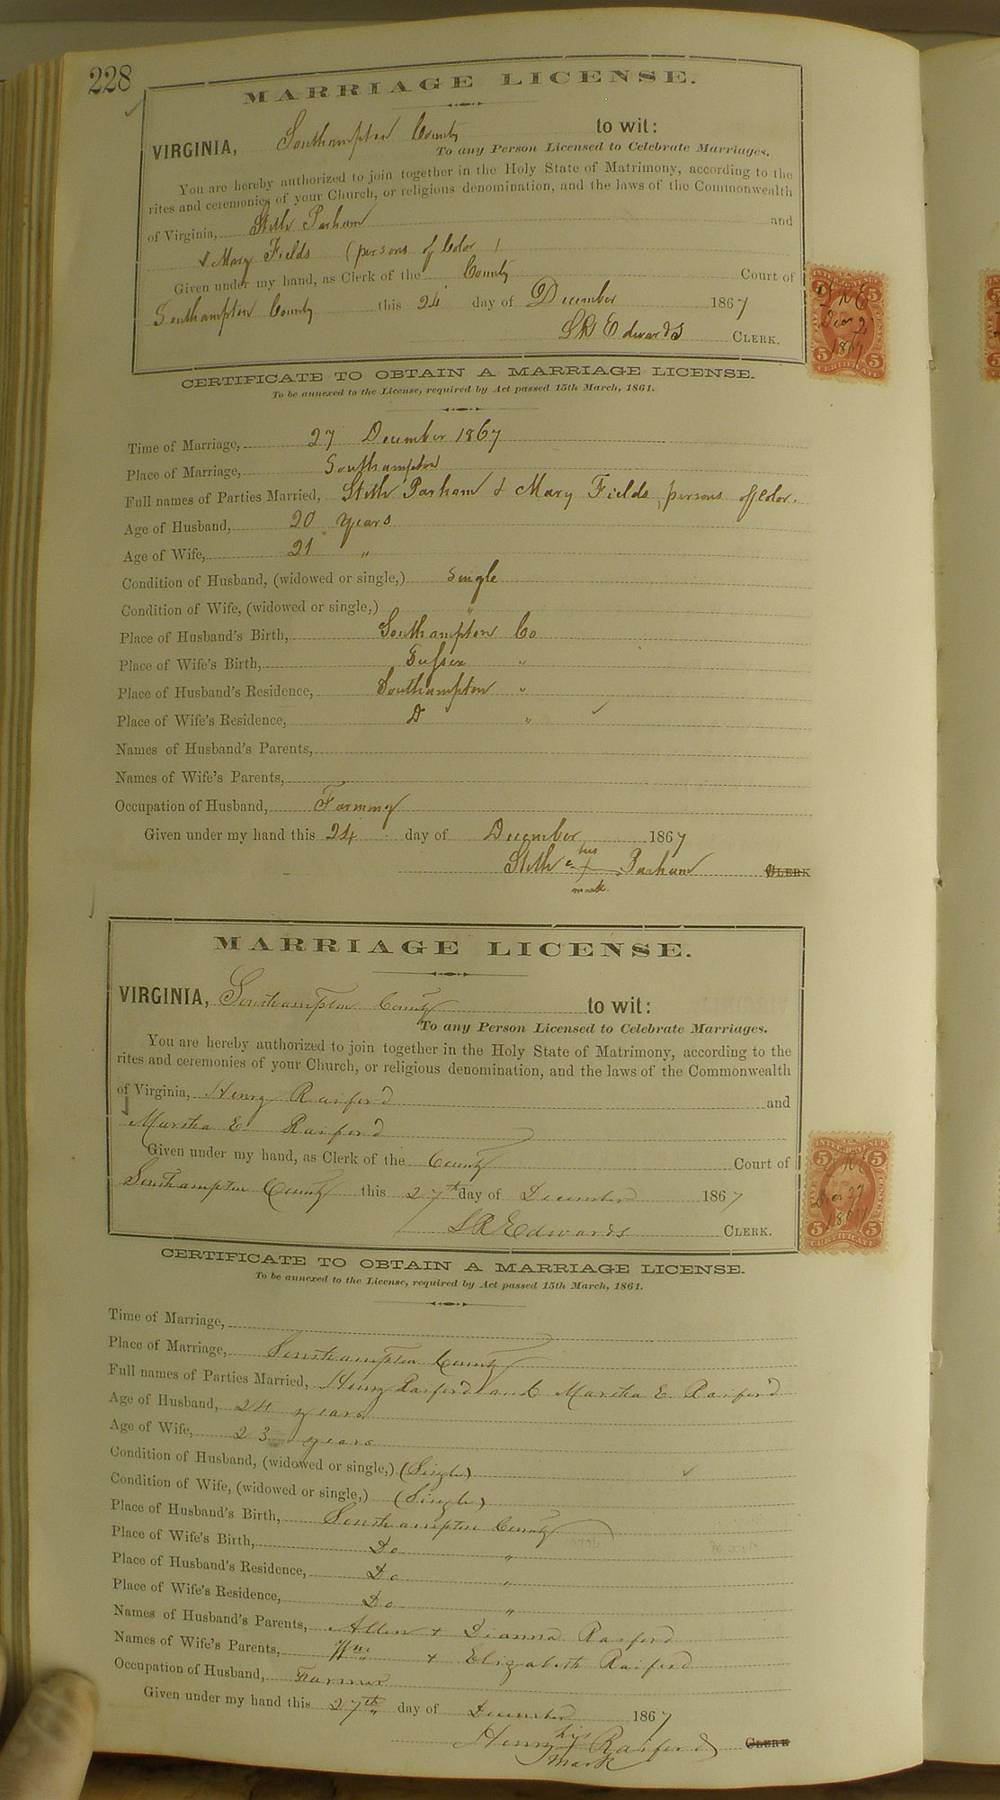 228
MARRIAGE LICENSE.
VIRGINIA, Southampton County to wit:
To any Person Licensed to Celebrate Marriages.
You are hereby authorized to join together in the Holy State of Matrimony, according to the
rites and ceremonies of your Church, or religious denomination, and the laws of the Commonwealth
of Virginia, Stith Parham and
& Mary Fields (persons of Color )
Given under my hand, as Clerk of the County Court of
Southampton County this 24 day of December 1867
LR Edwards CLERK.
CERTIFICATE TO OBTAIN A MARRIAGE LICENSE.
To be annexed to the License, required by Act passed 15th March, 1861.
Time of Marriage, 27 December 1867
Place of Marriage, Southampton
Full names of Parties Married, Stith Parham & Mary Fields, persons of Color.
Age of Husband, 20 years
Age of Wife, 21 "
Condition of Husband, (widowed or single,) Single
Condition of Wife, (widowed or single,) "
Place of Husband's Birth, Southampton Co
Place of Wife's Birth, Sussex "
Place of Husband's Residence, Southampton "
Place of Wife's Residence, D "
Names of Husband's Parents,
Names of Wife's Parents,
Occupation of Husband, Farming
Given under my hand this 24 day of December 1867
his
Stith X Parham CLERK
mark.
MARRIAGE LICENSE.
VIRGINIA, Southampton County to wit:
To any Person Licensed to Celebrate Marriages.
You are hereby authorized to join together in the Holy State of Matrimony, according to the
rites and ceremonies of your Church, or religious denomination, and the laws of the Commonwealth
of Virginia, Henry Raiford and
Martha E Raiford
Given under my hand, as Clerk of the County Court of
Southampton County this 27th day of December 1867
LR Edwards CLERK.
CERTIFICATE TO OBTAIN A MARRIAGE LICENSE.
To be annexed to the License, required by Act passed 15th March, 1861.
Time of Marriage,
Place of Marriage, Southampton County
Full names of Parties Married, Henry Raiford and Martha E. Raiford
Age of Husband, 24 years
Age of Wife, 23 years
Condition of Husband, (widowed or single,) (Single)
Condition of Wife, (widowed or single,) (Single)
Place of Husband's Birth, Southampton County
Place of Wife's Birth, Do "
Place of Husband's Residence, Do "
Place of Wife's Residence, Do "
Names of Husband's Parents, Allen + Dianna Raiford
Names of Wife's Parents, Wm + Elizabeth Raiford
Occupation of Husband, Farmer
Given under my hand this 27th day of December 1867
his
Henry Raiford CLERK
mark